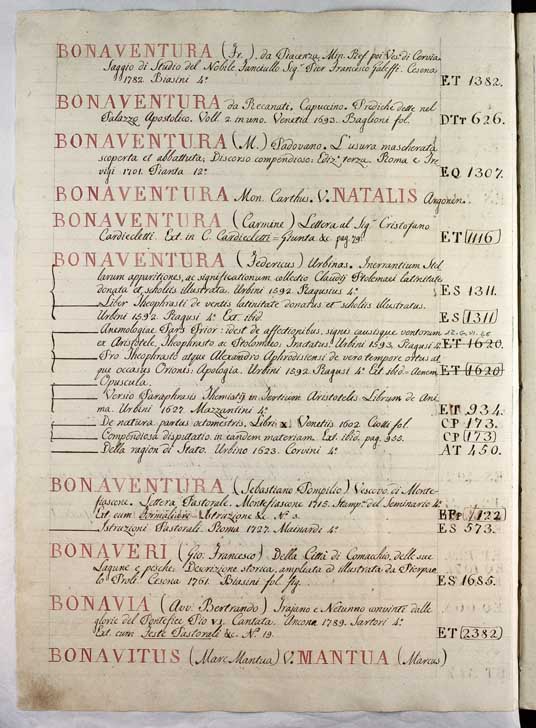 BONAVENTURA (Fr.) da Piacenza, Min. Ref. poi Vesc. di Corvia.
Saggio di Studio del Nobile Fanciullo Sigr. Pier Francesco Galeffi. Cesena
1782. Biasini 4º ET 1382.
BONAVENTURA da Recanati, Capuccino. Prediche dette nel
Palazzo Apostolico. Voll. 2. in uno. Venetiis 1693. Baglioni fol. DTt 626.
BONAVENTURA (M.) Padovano. L'usura mascherata
scoperta et abbattuta, Discorso compendioso: Ediz. terza. Roma e Tre
vigi 1701. Pianta 12º EQ 1307.
BONAVENTURA Mon. Carthus. V. NATALIS Argonen.
BONAVENTURA (Carmini) Lettera al Sigr. Cristofano
Cardieletti. Ext. in C. Cardieletti = Giunta &c. pag. 79. ET 1116
BONAVENTURA (Federicus) Urbinas. Inerrantium Stel
larum apparitiones, ac significationum collectio Claudij Ptolemaei latinitate
donata et scholiis illustrata. Urbini 1592. Ragusius 4º ES 1311.
Liber Theophrasti de ventis latinitate donatus et scholiis illustratus.
Urbini 1592. Ragusi 4º Ext. ibid ES 1311
Anemologiae Pars Prior: idest de affectionibus, signis causisque ventorum
ex Aristotele, Theophrasto ac Ptolomeo: Tractatus. Urbini 1593. Ragusi 4º ET 1620.
Pro Theophrasto atque Alexandro Aphrodisiensi de vero tempore ortus at
que occasus Orionis: Apologia. Urbini 1592. Ragusi 4º Ext. ibid ET 1620
Opuscula.
Versio Paraphrasis Themistij in Tertium Aristotelis Librum de Ani
ma. Urbini 1627. Mazzantini 4º ET 934.
De natura partus octomestris, Libri x. Venetiis 1602. fol. CP 173.
Compendiosa disputatio in eandem materiam. Ext. ibid. pag. 935. CP 173
Della ragion di Stato. Urbino 1623. Corvini 4º AT 450.
BONAVENTURA (Sebastiano Pompilio) Vescovo di Monte-
fiascone. Lettera Pastorale. Montefiascone 1715. Stamp. del Seminario 4º
Ext. cum Istruzione &c. Nº 3. 1122
Istruzioni Pastorali. Roma 1727. Mainardi 4º ES 573.
BONAVERI (Gio. Francesco) Della Città di Comacchio, delle sue
Lagune e pesche. Descrizione storica, ampliata ed illustrata da Pierpao
lo Proli. Cesena 1761. Biasini fol. fig. ES 1685.
BONAVIA (Avv. Bertrando) Trajano e Nettunno convinti dalle
glorie del Pontefice Pio VI. Cantata. Ancona 1789. Sartori 4º
Ext. cum Feste Pastorali &c. Nº 19. ET 2382
BONAVITUS (Marc Mantua) V. MANTUA (Marcus)